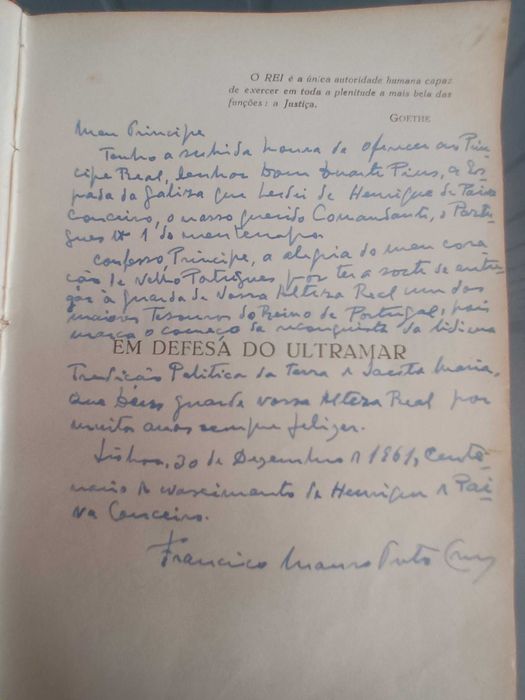 O REI é a única autoridade humana capaz
de exercer em toda a plenitude a mais bela das
funções: a Justiça.
GOETHE
Meu Principe
Tenho a subida honra de oferecer ao Prin-
cipe Real, Senhor Dom Duarte Pius, a Es-
pada da Galiza que herdei de Henrique de Paiva
Conceiro, o nosso querido Comandante, o Portu-
guês nº 1 do meu tempo
Confesso, Principe, a alegria do meu cora-
ção de velho Português por ter a sorte de entre-
gar à guarda de Vossa Alteza Real um dos
maiores Tesouros do Reino de Portugal, pois
marca o começo da reconquista da lidima
EM DEFESA DO ULTRAMAR
Tradição Politica da Terra de Santa Maria,
que Deus guarde Vossa Alteza Real por
muitos anos sempre felizes.
Lisboa, 30 de Dezembro de 1961, Cente-
nario do nascimento de Henrique de Pai-
va Conceiro.
Francisco Manso Preto Cruz